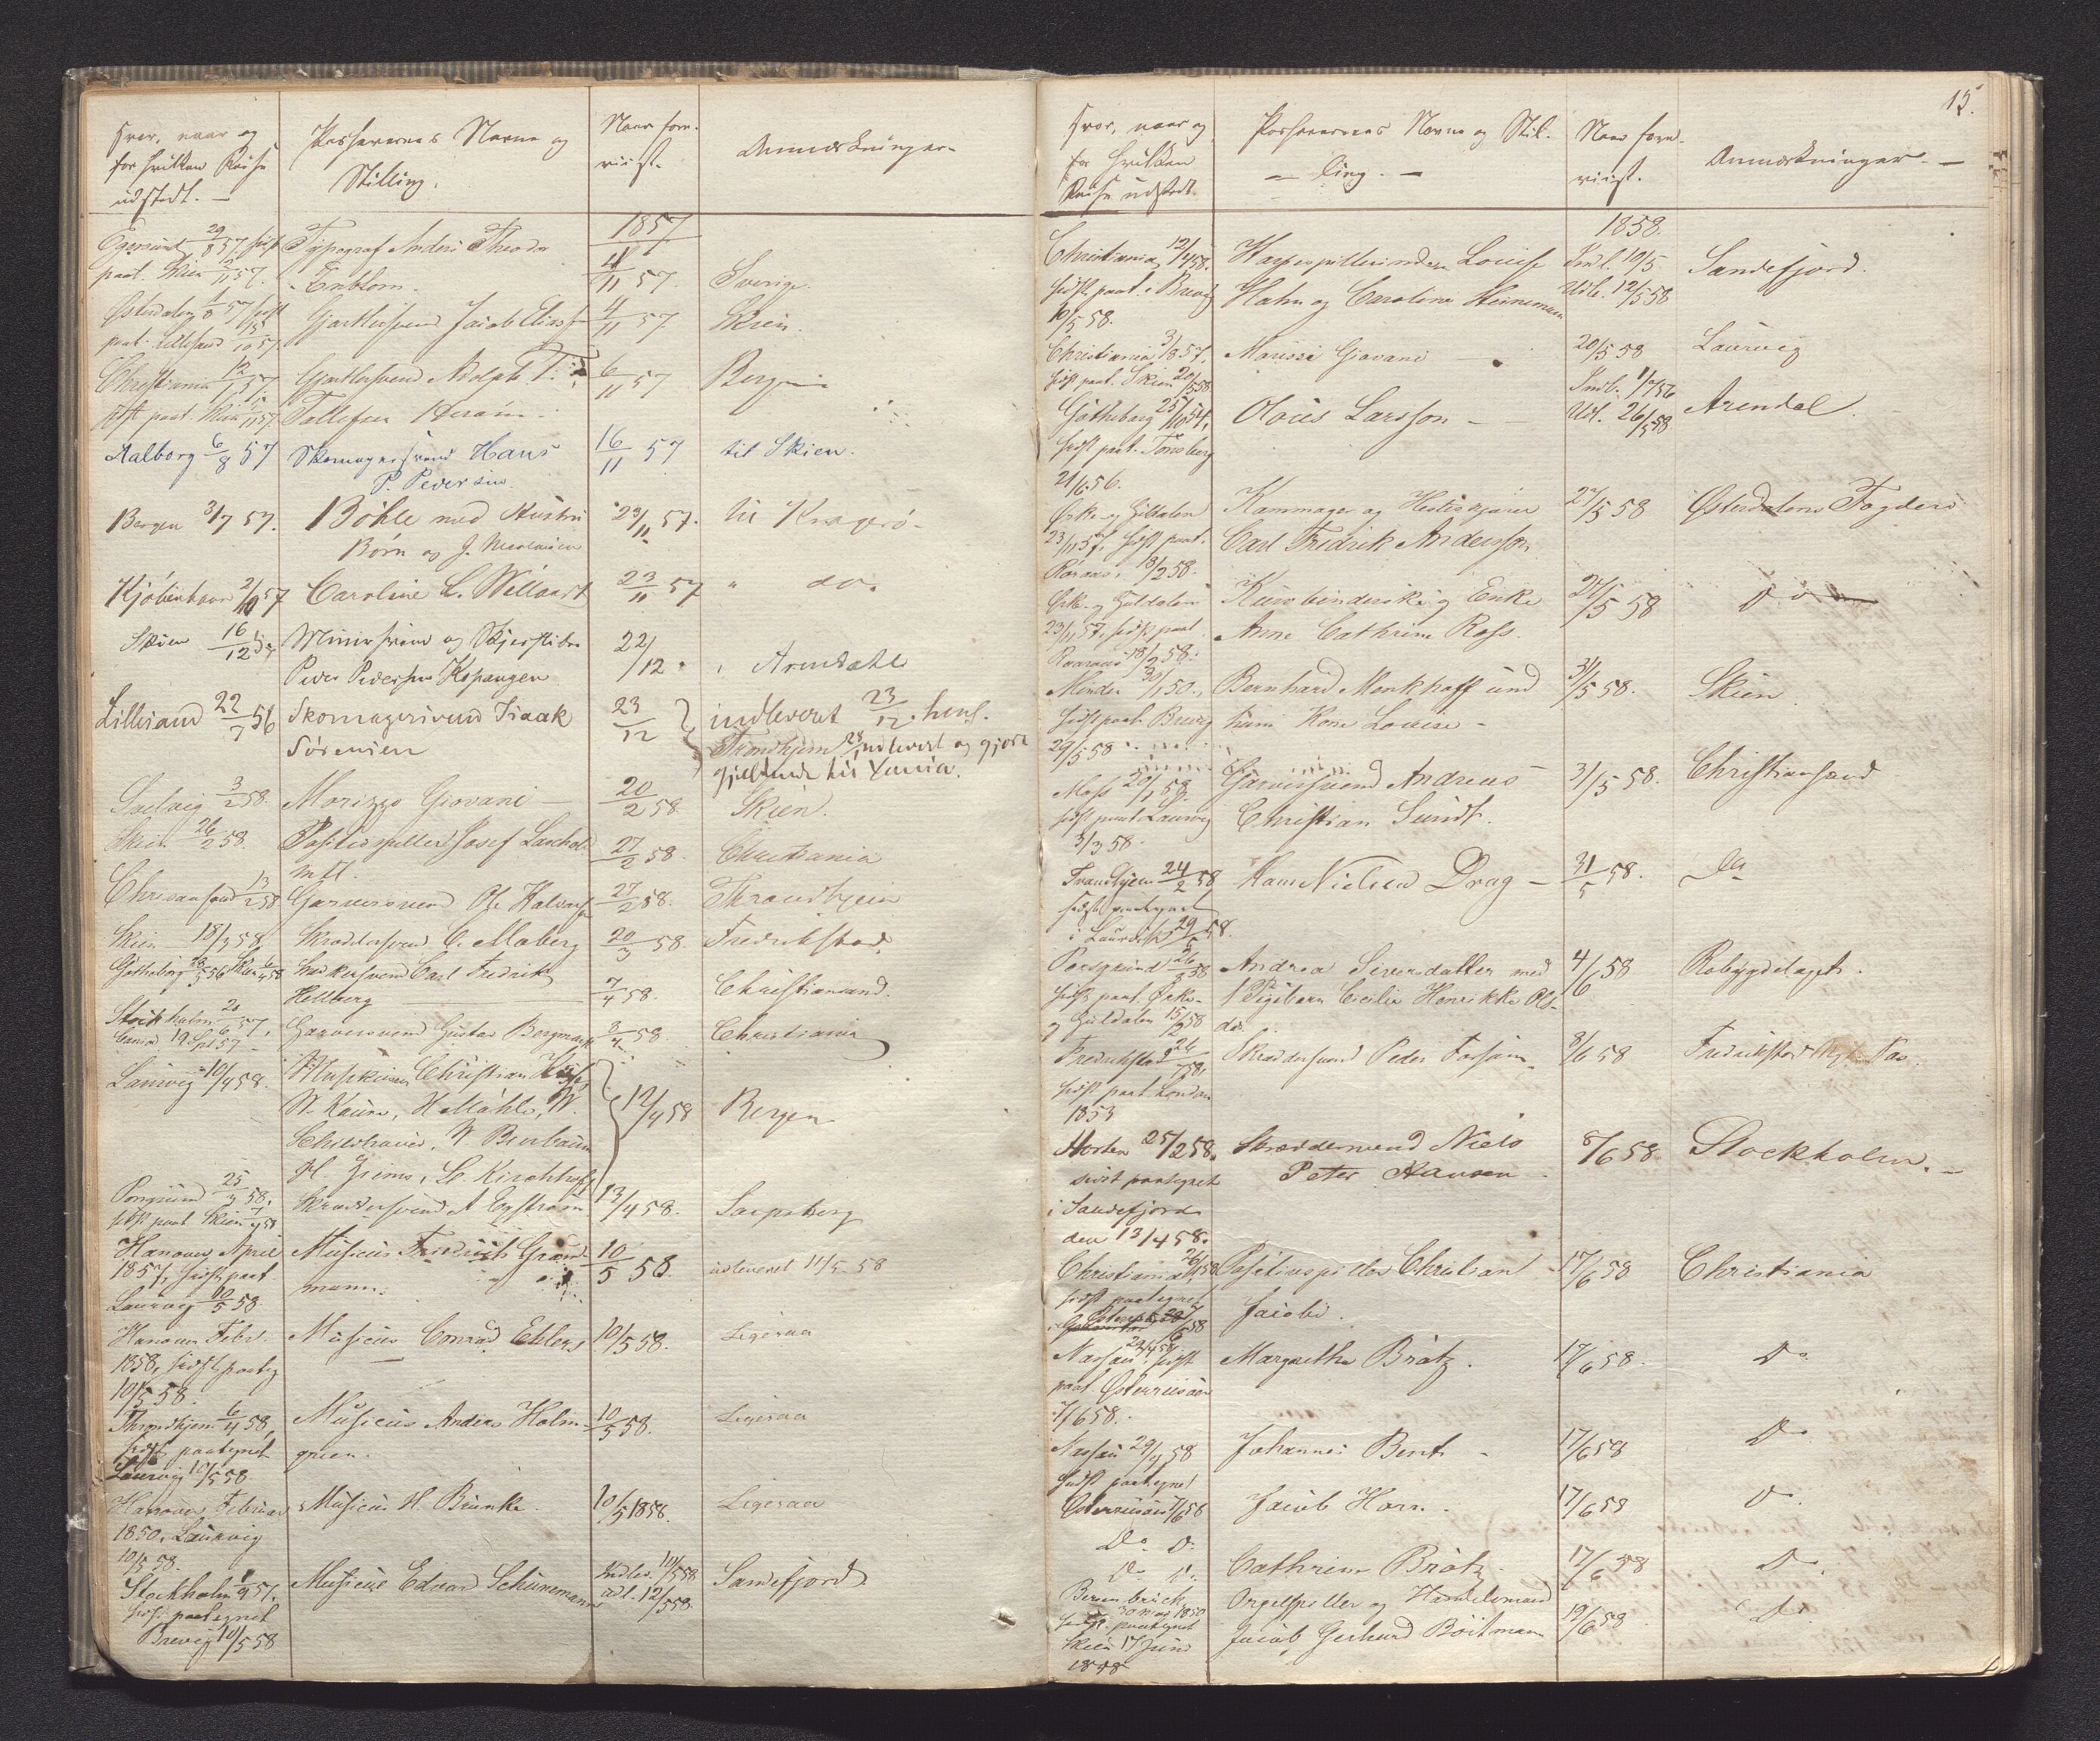 Hvor, naar og
for hvilken Reise
udstedt. —
Passerernes Navne og
Stilling.
Naar fore-
viist.
Anmærkninger.
1857
Egersund 29/8 57 sidst
paat. Skien 2/11 57.
Typograf Anders Theodor
Enblom.
4/11 57.
Sverige.
Østerdalen 1/8 57 sidst
paat. Lillesand 15/10 57.
Gjørtlersvend Jacob Elias
4/11 57
Skien.
Christiania 12/1 57
sidst paat. Skien 57
Gjørtlersvend Adolph T.
Tollefsen
6/11 57
Bergen
Aalborg 6/8 57
Skomagersvend Hans
P. Pedersen
16/11 57
til Skien.
Bergen 3/7 57.
Böhle med Hustru
Børn og J.
23/11 57.
til Kragerø.
Kjøbenhavn 2/10 57
Caroline C. Willardt
23/11 57
" do.
Skien 16/12 57
Minersvend og
Peder Pedersen Kopangen
22/12 "
" Arendahl
Lillesand 22/7 56
Skomagersvend Isaak
Sörensen
23/12
indleveret 23/12. hens.
Trondhjem indleveret og gjort
gjeldende til Xania.
3/2 58.
Morizzo Giovani —
20/2 58
Skien.
Skien 26/2 58.
Positivspiller Josef
m fl.
27/2 58.
Christiania
Chrisansand 13/2 58
Garversvend Ole Halvors
27/2 58.
Throndhjem
Skien 18/3 58
Skræddersvend C. Moberg
20/3 58.
Fredrikstad
Götheborg 18/5 56 Skien 6/4 58
Snedkersvend Carl Fredrik
Hellberg
7/4 58.
Christiansand.
Stockholm 20/6 57,
19 Spt 57 —
Garversvend Gustav Bergmark
8/4 58
Christiania
Laurvig 10/4 58.
Musikeren Christian
W. Kaune, H Mahls, W.
W Bierbaum
H. Grims, L. Kirchhoff
12/4 58
Bergen
Porsgrund 25/3 58,
sidst paat Skien
Skræddersvend A Engstrøm
13/4 58.
Sarpsborg
Hanover April
1857, sidst paat
Laurvig 10/5 58
Musicus Friedrich Grand
mann.
10/5 58
udleveret 11/5 58
Hanover Febr.
1858, sidst paateg
10/5 58.
Musicus Conrad Ehlers
10/5 58.
Ligesaa
Throndhjem 6/4 58,
sidst paategnet
Laurvig 10/5 58
Musicus Anders Holm-
green.
10/5 58.
Ligesaa
Hanover Februar
1850, Laurvig
10/5 58.
Musicus H. Brunke.
10/5 1858.
Ligesaa
Stockholm 1/9 57,
sidst paategnet
Brevig 10/5 58
Musicus Edvard Schunemann
Indlev. 10/5 58
udl. 12/5 58.
Sandefjord
15.
Hvor, naar og
for hvilken
Reise udstedt
Passerernes Navne og Stil-
— ling. —
Naar fore-
viist.
Anmærkninger. —
1858.
Christiania 12/4 58.
sidst paat. i Brevig
10/5 58.
Harpespillerinden Louise
Hahn og Caroline Heinemann
Indl. 10/5
Udl. 12/5 58
Sandefjord.
Christiania 3/8 57.
sidst paat. Skien 20/5 58
Marissi Giovani —
20/5 58
Laurvig
Götheborg 25/10 54,
sidst paat. Tönsberg
21/6 56.
Olaus Larsson — —
Indl. 1/7 56
Udl. 26/5 58
Arendal.
Orke- og Guldalen
23/11 57, sidst paat.
Röraas, 18/2 58.
Kammager og
Carl Fredrik Andersson
27/5 58
Østerdalens Fogderi
Orke- og Guldalen
23/11 57, sidst paat
Roraas 18/2 58.
Kurvbinderske og Enke
Anne Cathrine Ross.
27/5 58
Do
Minden 30/1 50.,
sidst paat. Brevig
29/5 58
Bernhard Menkhoff und
hans Kone Louise —
31/5 58.
Skien
Moss 20/1 58.
sidst paat Laurvig
3/3 58.
Garversvend Andreas
Christian Sundt.
31/5 58.
Christiansand
Trondhjem 24/2 58,
sidst paategnet
i Laurvig 29/5 58.
Hans Nielsen Drag —
31/5 58.
Do
Porsgrund 26/8 58
sidst paat. Orke-
og Guldalen 15/2 58
Andrea Siversdatter med
1 Pigebarn Cicilie Henrikke Ols-
dtr.
4/6 58
Robygdelaget.
Fredrikstad 26/7 58,
sidst paat London
1853
Skræddersvend Peder
8/6 58
Fredrikstad
Horten 25/2 58.
sidst paategnet
i Sandefjord
den 13/4 58.
Skræddersvend Niels
Peter Hansen
8/6 58
Stockholm. —
Christiania 26/4 58
sidst paategnet
7/6 58
Positivspiller Christian
Jacobi.
17/6 58
Christiania
Nassau 29/4 58 sidst
paat. Österriisöer
7/6 58.
Margrethe Brätz.
17/6 58.
Do
Nassau 29/4 58
sidst paategnet
Österriisöer 7/6 58
Johannes Bent —
17/6 58
Do
Do Do
Jacob Horn.
17/6 58
Do
Do Do
Cathrine Brätz.
17/6 58
Do
sidst paategnet
Skien 17 Juni
1858
Orgelspiller og Handelsmand
Jacob Gerhard Böitmann
19/6 58
Do